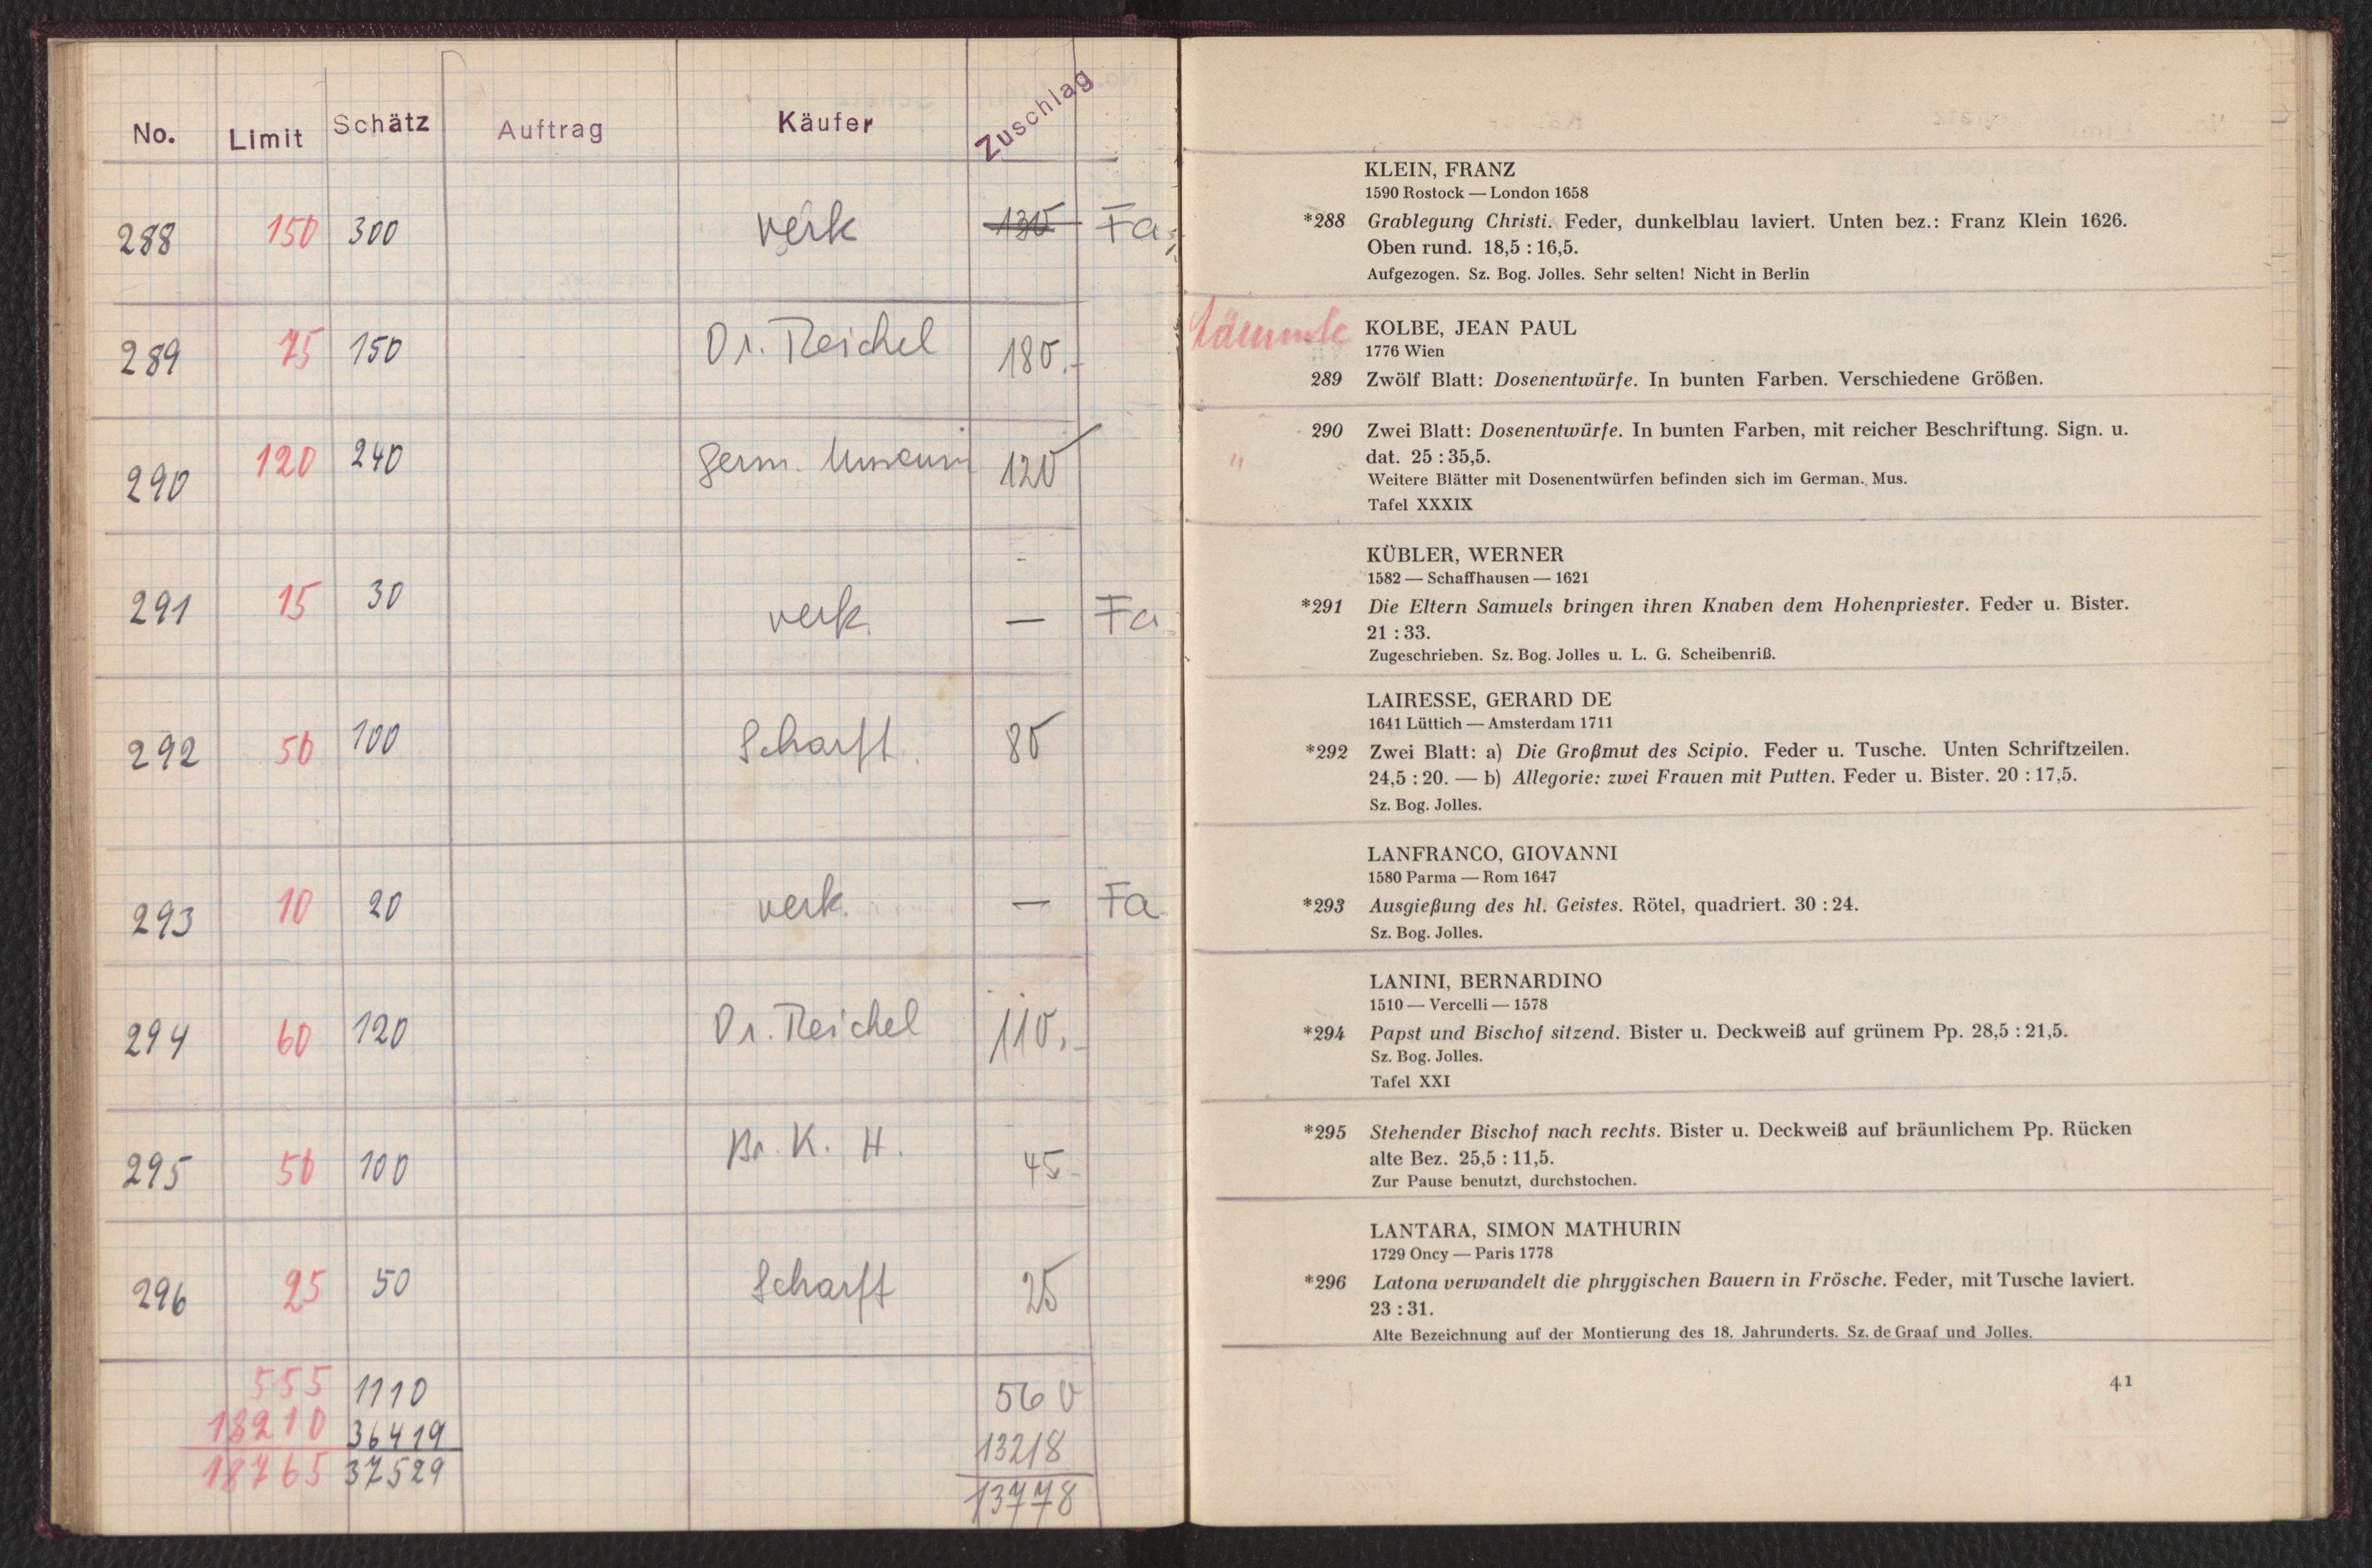 No. Limit Schätz Auftrag Käufer Zuschlag
288 150 300 verk 130 Fa
289 75 150 Dr. Reichel 180.-
290 120 240 Germ. Museum 120
291 15 30 verk. — Fa
292 50 100 Scharff. 80
293 10 20 verk. — Fa
294 60 120 Dr. Reichel 110.-
295 50 100 Br. K. H. 45.-
296 25 50 Scharff 25
555 1110 560
18210 36419 13218
18765 37529 13778
KLEIN, FRANZ
1590 Rostock — London 1658
*288 Grablegung Christi. Feder, dunkelblau laviert. Unten bez.: Franz Klein 1626.
Oben rund. 18,5 : 16,5.
Aufgezogen. Sz. Bog. Jolles. Sehr selten! Nicht in Berlin
KOLBE, JEAN PAUL
1776 Wien
289 Zwölf Blatt: Dosenentwürfe. In bunten Farben. Verschiedene Größen.
290 Zwei Blatt: Dosenentwürfe. In bunten Farben, mit reicher Beschriftung. Sign. u.
" dat. 25 : 35,5.
Weitere Blätter mit Dosenentwürfen befinden sich im German. Mus.
Tafel XXXIX
KÜBLER, WERNER
1582 — Schaffhausen — 1621
*291 Die Eltern Samuels bringen ihren Knaben dem Hohenpriester. Feder u. Bister.
21 : 33.
Zugeschrieben. Sz. Bog. Jolles u. L. G. Scheibenriß.
LAIRESSE, GERARD DE
1641 Lüttich — Amsterdam 1711
*292 Zwei Blatt: a) Die Großmut des Scipio. Feder u. Tusche. Unten Schriftzeilen.
24,5 : 20. — b) Allegorie: zwei Frauen mit Putten. Feder u. Bister. 20 : 17,5.
Sz. Bog. Jolles.
LANFRANCO, GIOVANNI
1580 Parma — Rom 1647
*293 Ausgießung des hl. Geistes. Rötel, quadriert. 30 : 24.
Sz. Bog. Jolles.
LANINI, BERNARDINO
1510 — Vercelli — 1578
*294 Papst und Bischof sitzend. Bister u. Deckweiß auf grünem Pp. 28,5 : 21,5.
Sz. Bog. Jolles.
Tafel XXI
*295 Stehender Bischof nach rechts. Bister u. Deckweiß auf bräunlichem Pp. Rücken
alte Bez. 25,5 : 11,5.
Zur Pause benutzt, durchstochen.
LANTARA, SIMON MATHURIN
1729 Oncy — Paris 1778
*296 Latona verwandelt die phrygischen Bauern in Frösche. Feder, mit Tusche laviert.
23 : 31.
Alte Bezeichnung auf der Montierung des 18. Jahrhunderts. Sz. de Graaf und Jolles.
41